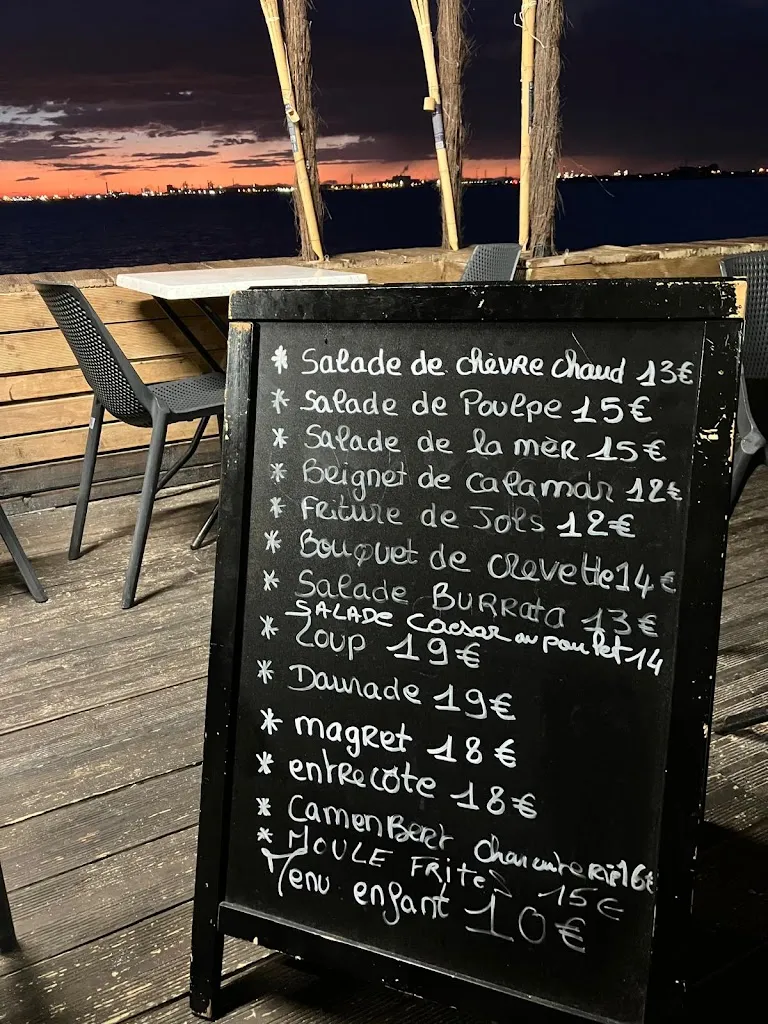 * Salade de chèvre chaud 13€
* Salade de Poulpe 15€
* Salade de la mèr 15€
* Beignet de calamar 12€
* Friture de Jols 12€
* Bouquet de crevette 14€
* Salade BURRata 13€
SALADE Caesar au poulet 14
* Loup 19€
* Daurade 19€
* magret 18€
* entrecôte 18€
* CamenBert charcuterie 16€
* MOULE FRites 15€
Menu enfant 10€